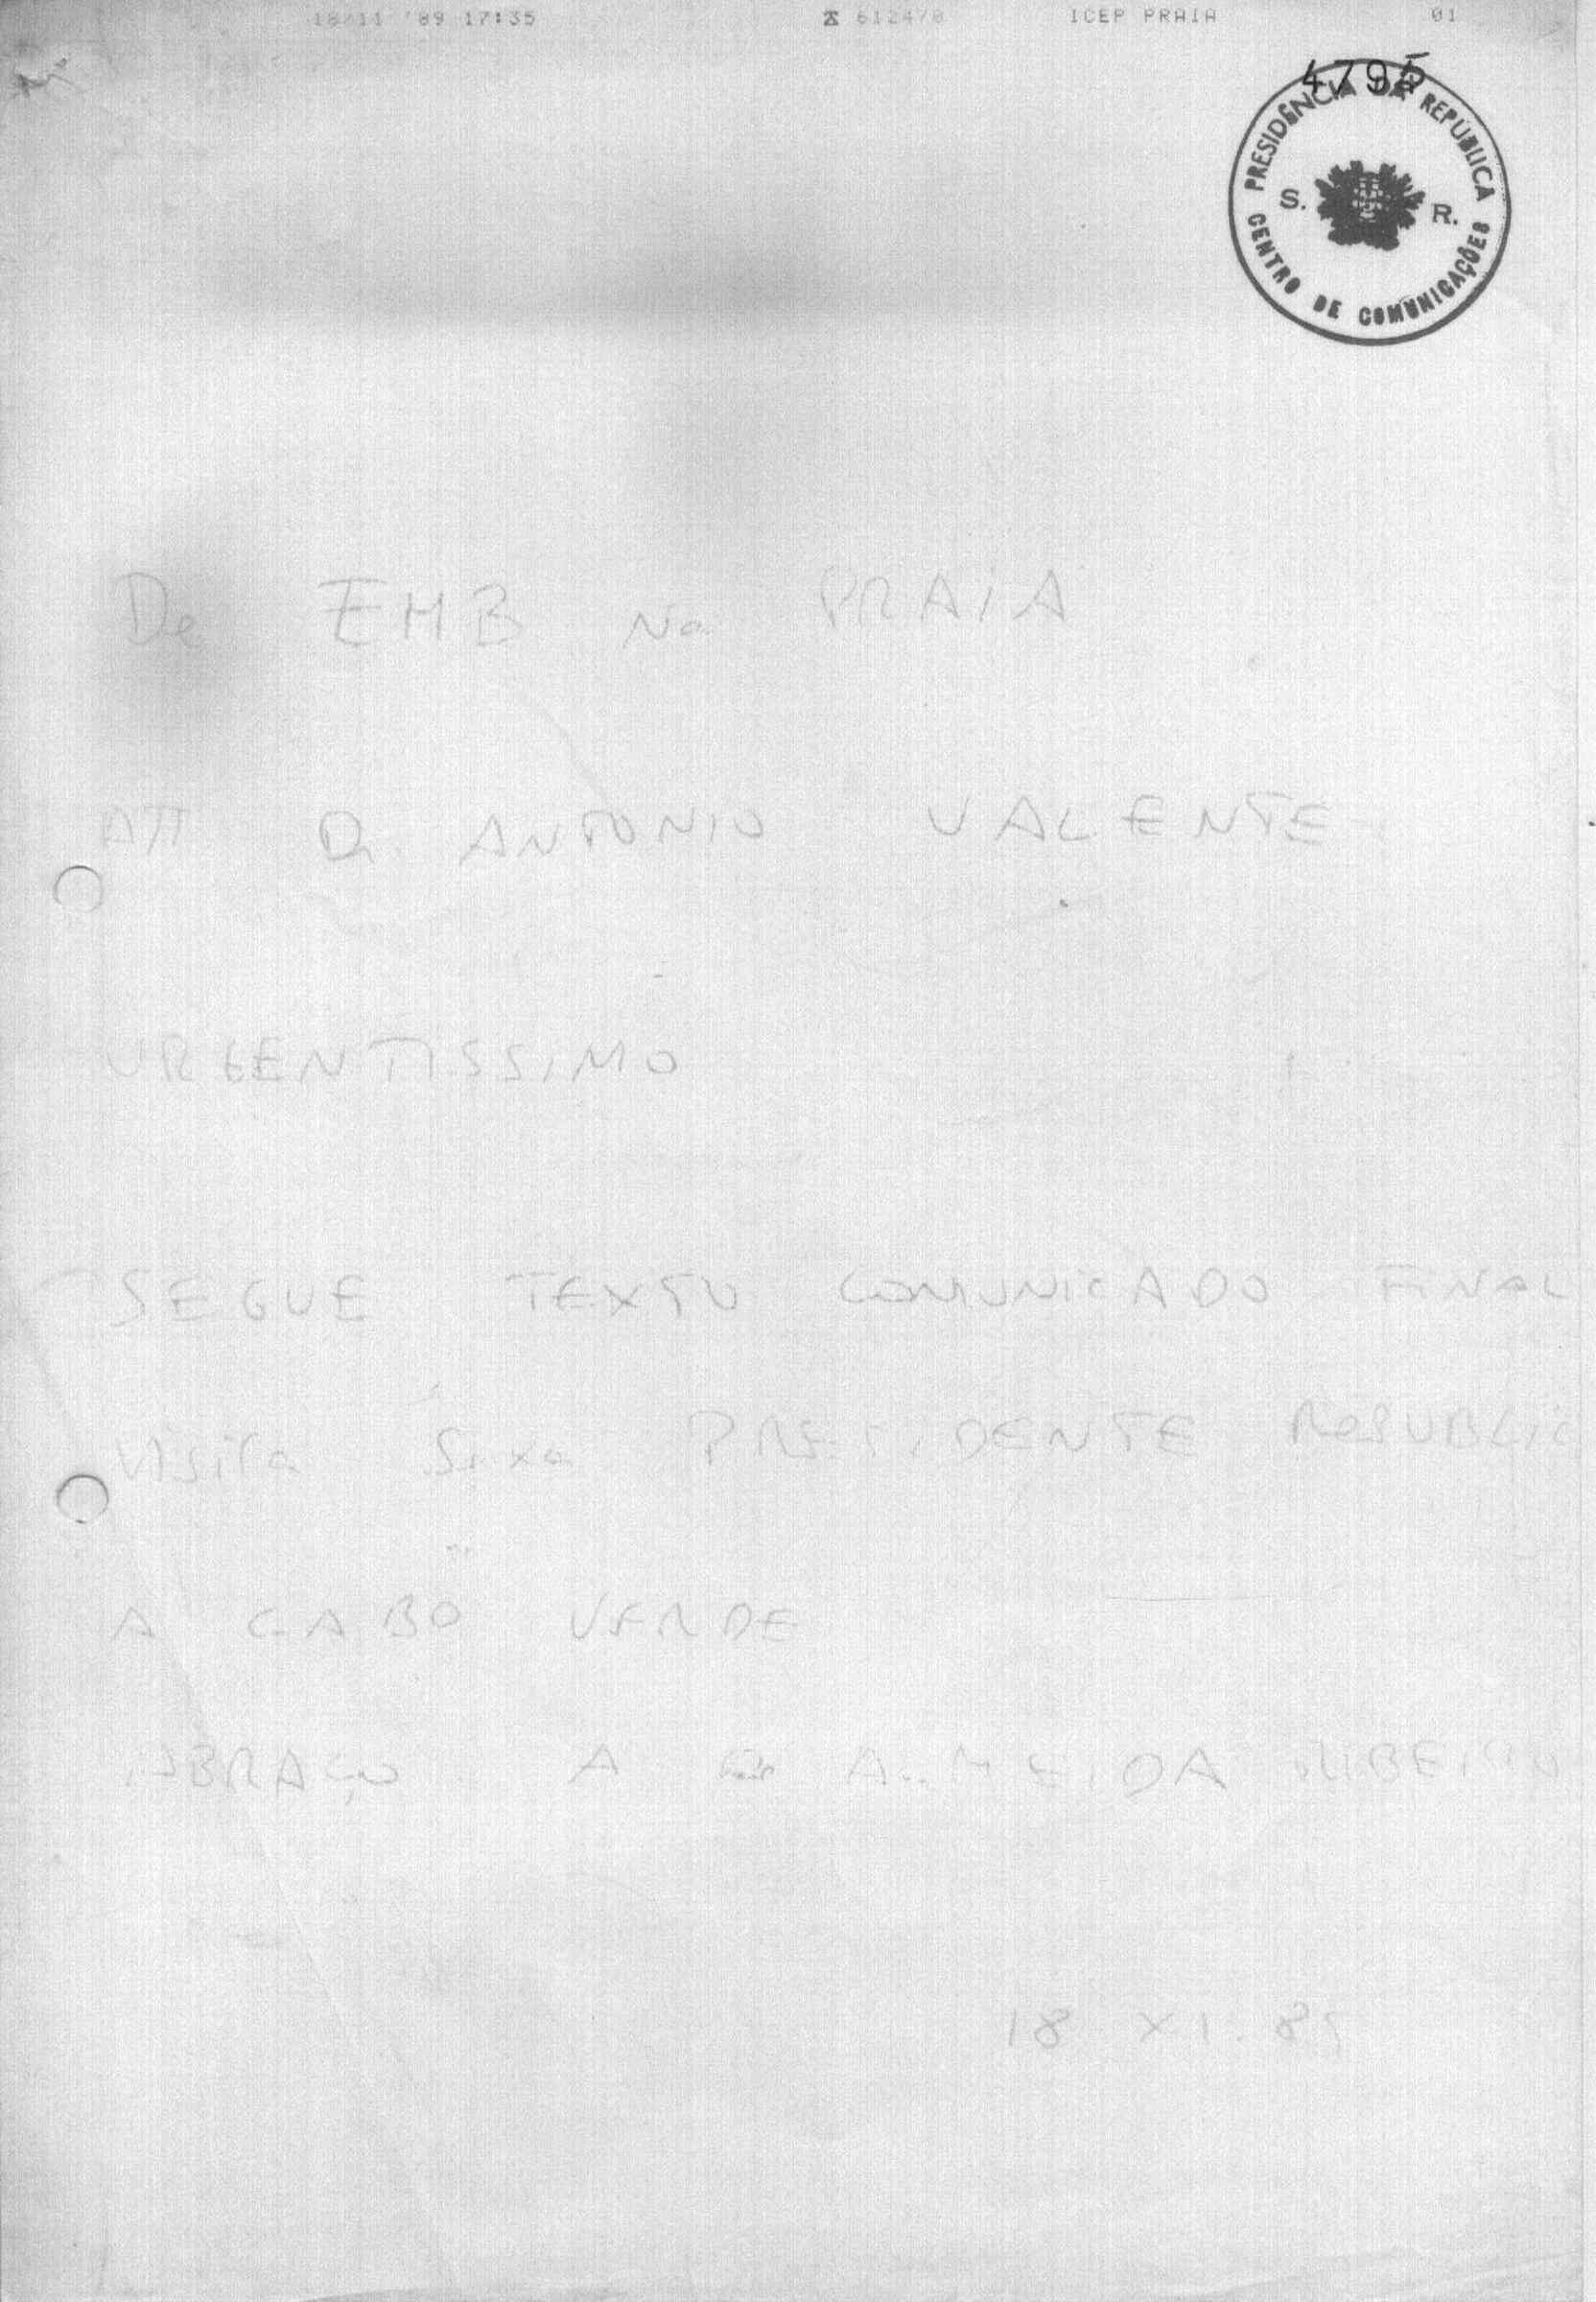 18/11 '89 17:35 ☎ 612470 ICEP PRAIA 01
4795
PRESIDÊNCIA DA REPÚBLICA
S. R.
CENTRO DE COMUNICAÇÕES
De EMB Na PRAIA
ATT Dr ANTONIO VALENTE
URGENTISSIMO
SEGUE TEXTO COMUNICADO FINAL
Visita Sexa PRESIDENTE REPUBLIC
A CABO VERDE
ABRAÇO A ALMEIDA RIBEIRO
18 XI. 89